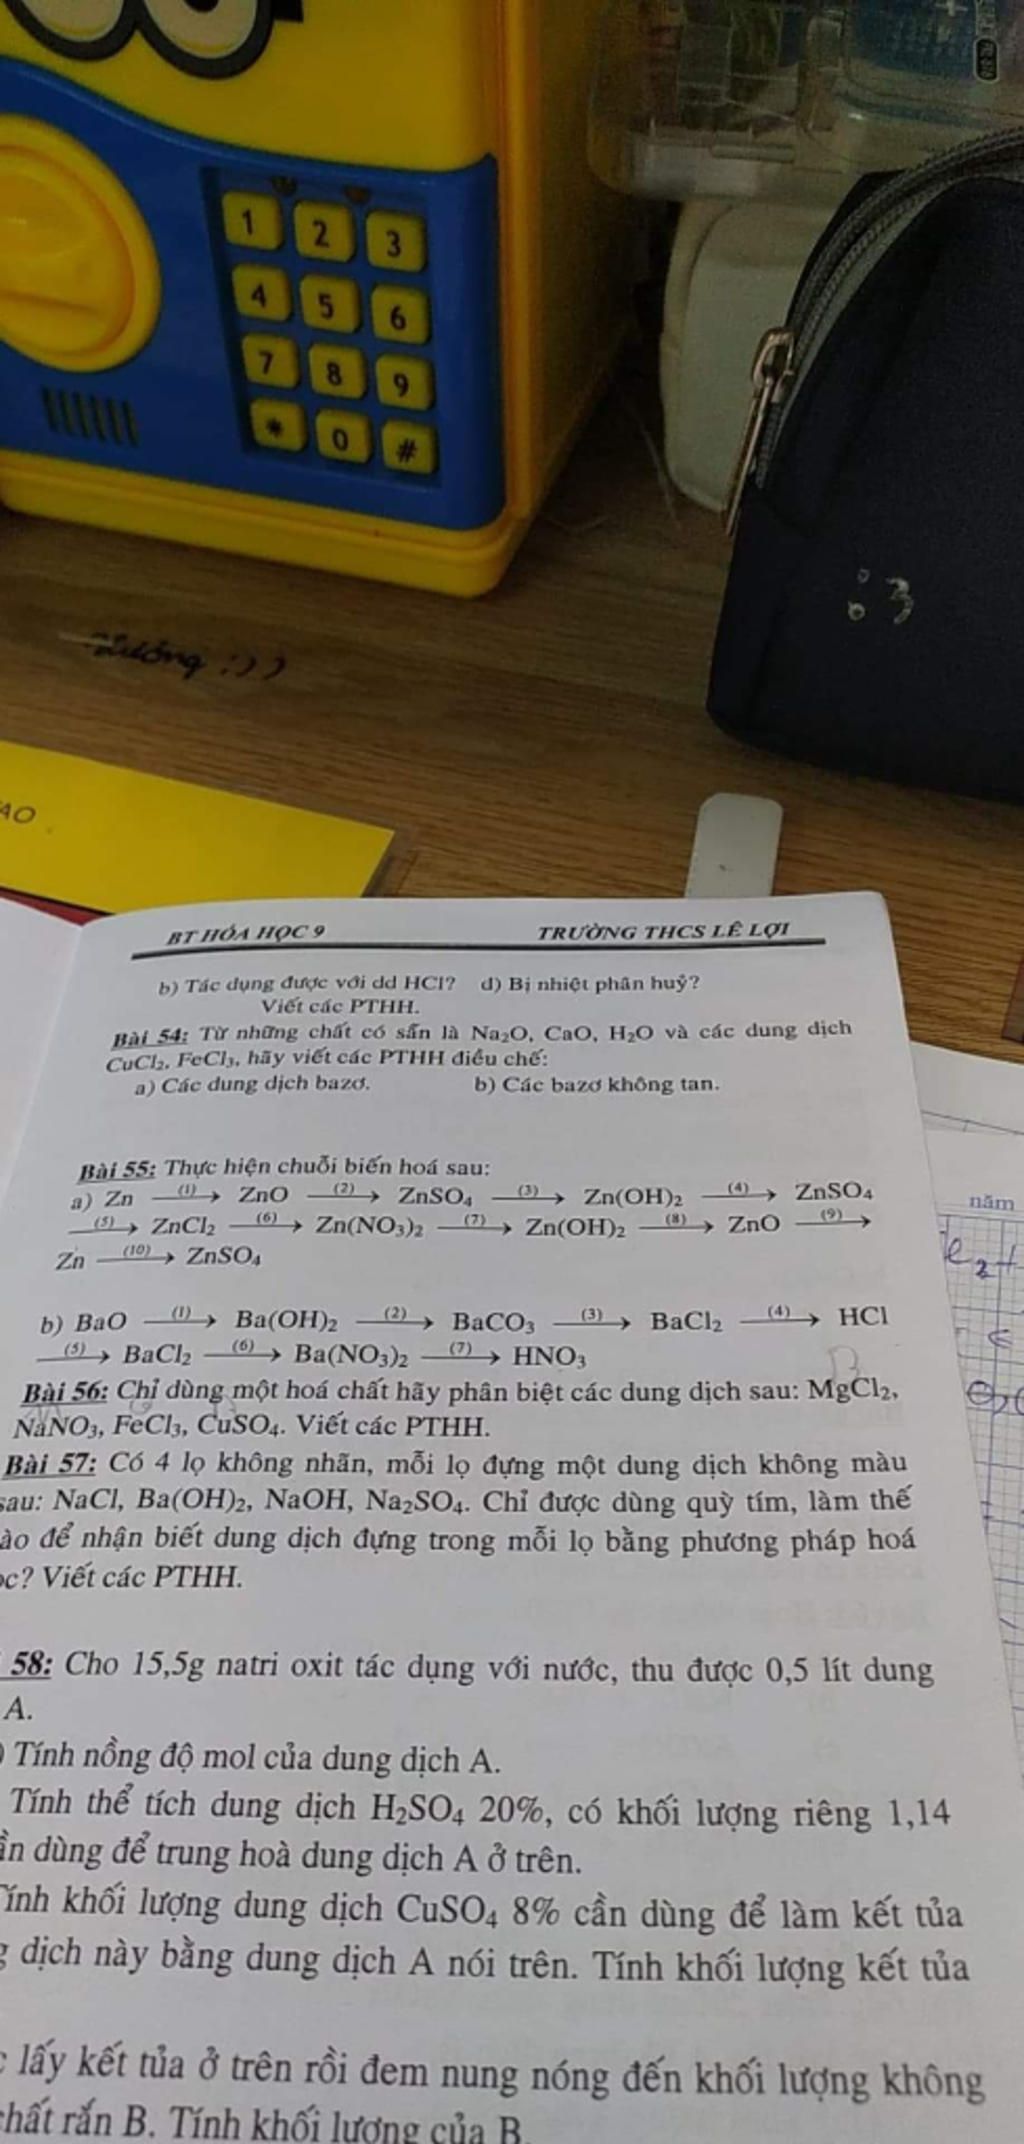 1 2 3
4 5 6
7 8 9
* 0 #
:3
:))
AO
BT HÓA HỌC 9 TRƯỜNG THCS LÊ LỢI
b) Tác dụng được với dd HCl? d) Bị nhiệt phân huỷ?
Viết các PTHH.
Bài 54: Từ những chất có sẵn là Na₂O, CaO, H₂O và các dung dịch
CuCl₂, FeCl₃, hãy viết các PTHH điều chế:
a) Các dung dịch bazơ. b) Các bazơ không tan.
Bài 55: Thực hiện chuỗi biến hoá sau:
a) Zn —(1)→ ZnO —(2)→ ZnSO₄ —(3)→ Zn(OH)₂ —(4)→ ZnSO₄
—(5)→ ZnCl₂ —(6)→ Zn(NO₃)₂ —(7)→ Zn(OH)₂ —(8)→ ZnO —(9)→
Zn —(10)→ ZnSO₄
b) BaO —(1)→ Ba(OH)₂ —(2)→ BaCO₃ —(3)→ BaCl₂ —(4)→ HCl
—(5)→ BaCl₂ —(6)→ Ba(NO₃)₂ —(7)→ HNO₃
Bài 56: Chỉ dùng một hoá chất hãy phân biệt các dung dịch sau: MgCl₂,
NaNO₃, FeCl₃, CuSO₄. Viết các PTHH.
Bài 57: Có 4 lọ không nhãn, mỗi lọ đựng một dung dịch không màu
sau: NaCl, Ba(OH)₂, NaOH, Na₂SO₄. Chỉ được dùng quỳ tím, làm thế
ào để nhận biết dung dịch đựng trong mỗi lọ bằng phương pháp hoá
ọc? Viết các PTHH.
58: Cho 15,5g natri oxit tác dụng với nước, thu được 0,5 lít dung
A.
) Tính nồng độ mol của dung dịch A.
Tính thể tích dung dịch H₂SO₄ 20%, có khối lượng riêng 1,14
ần dùng để trung hoà dung dịch A ở trên.
Tính khối lượng dung dịch CuSO₄ 8% cần dùng để làm kết tủa
g dịch này bằng dung dịch A nói trên. Tính khối lượng kết tủa
c lấy kết tủa ở trên rồi đem nung nóng đến khối lượng không
chất rắn B. Tính khối lượng của B.
năm